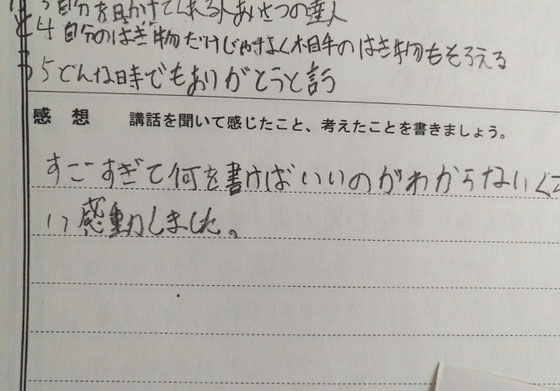 3自分を助けてくれる人あいさつの達人
と4自分のはき物だけじゃなく相手のはき物もそろえる
5どんな時でもありがとうと言う
感 想 講話を聞いて感じたこと、考えたことを書きましょう。
すごすぎて何を書けばいいのがわからないくら
い感動しました。